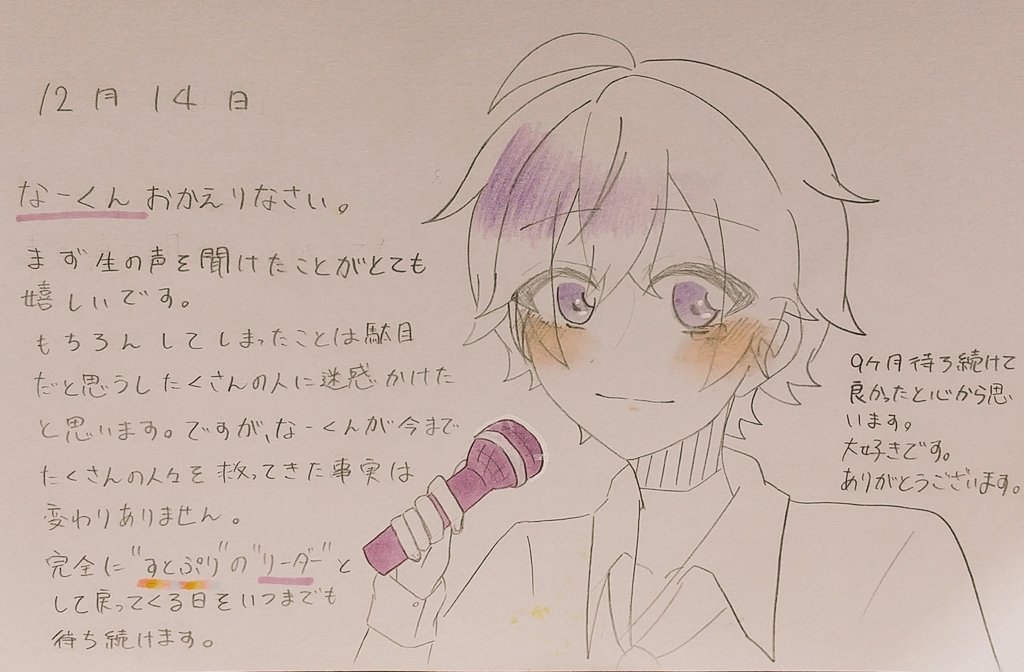 12月14日
なーくんおかえりなさい。
まず生の声を聞けたことがとても
嬉しいです。
もちろんしてしまったことは駄目
だと思うしたくさんの人に迷惑かけた
と思います。ですが、なーくんが今まで
たくさんの人々を救ってきた事実は
変わりありません。
完全に"すとぷり"の"リーダー"と
して戻ってくる日をいつまでも
待ち続けます。
9ヶ月待ち続けて
良かったと心から思
います。
大好きです。
ありがとうございます。